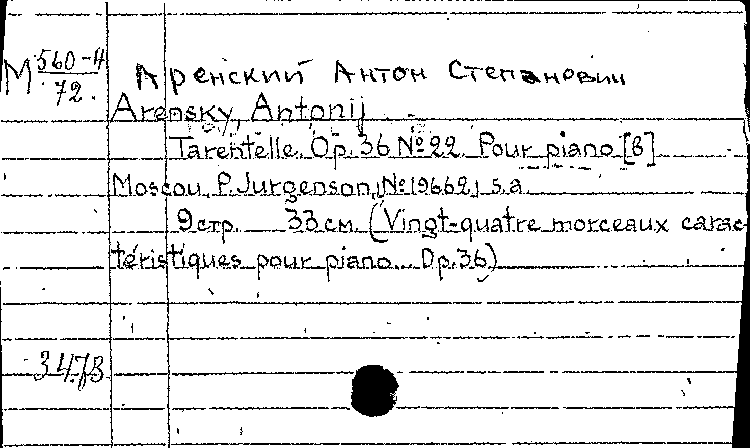 М 560-4
72.
Аренский Антон Степанович
Arensky, Antonij
Tarentelle. Op. 36 № 22. Pour piano [в]
Moscou, P. Jurgenson, [№ 19662] s.a.
9 стр. 33 см. (Vingt-quatre morceaux carac-
téristiques pour piano... Op. 36)